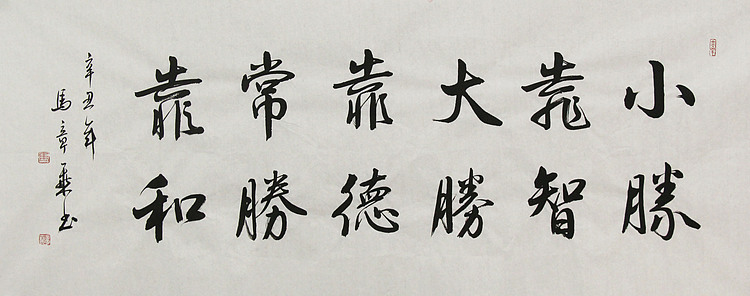 小勝
靠智
大勝
靠德
常勝
靠和
辛丑年
馬章乘书